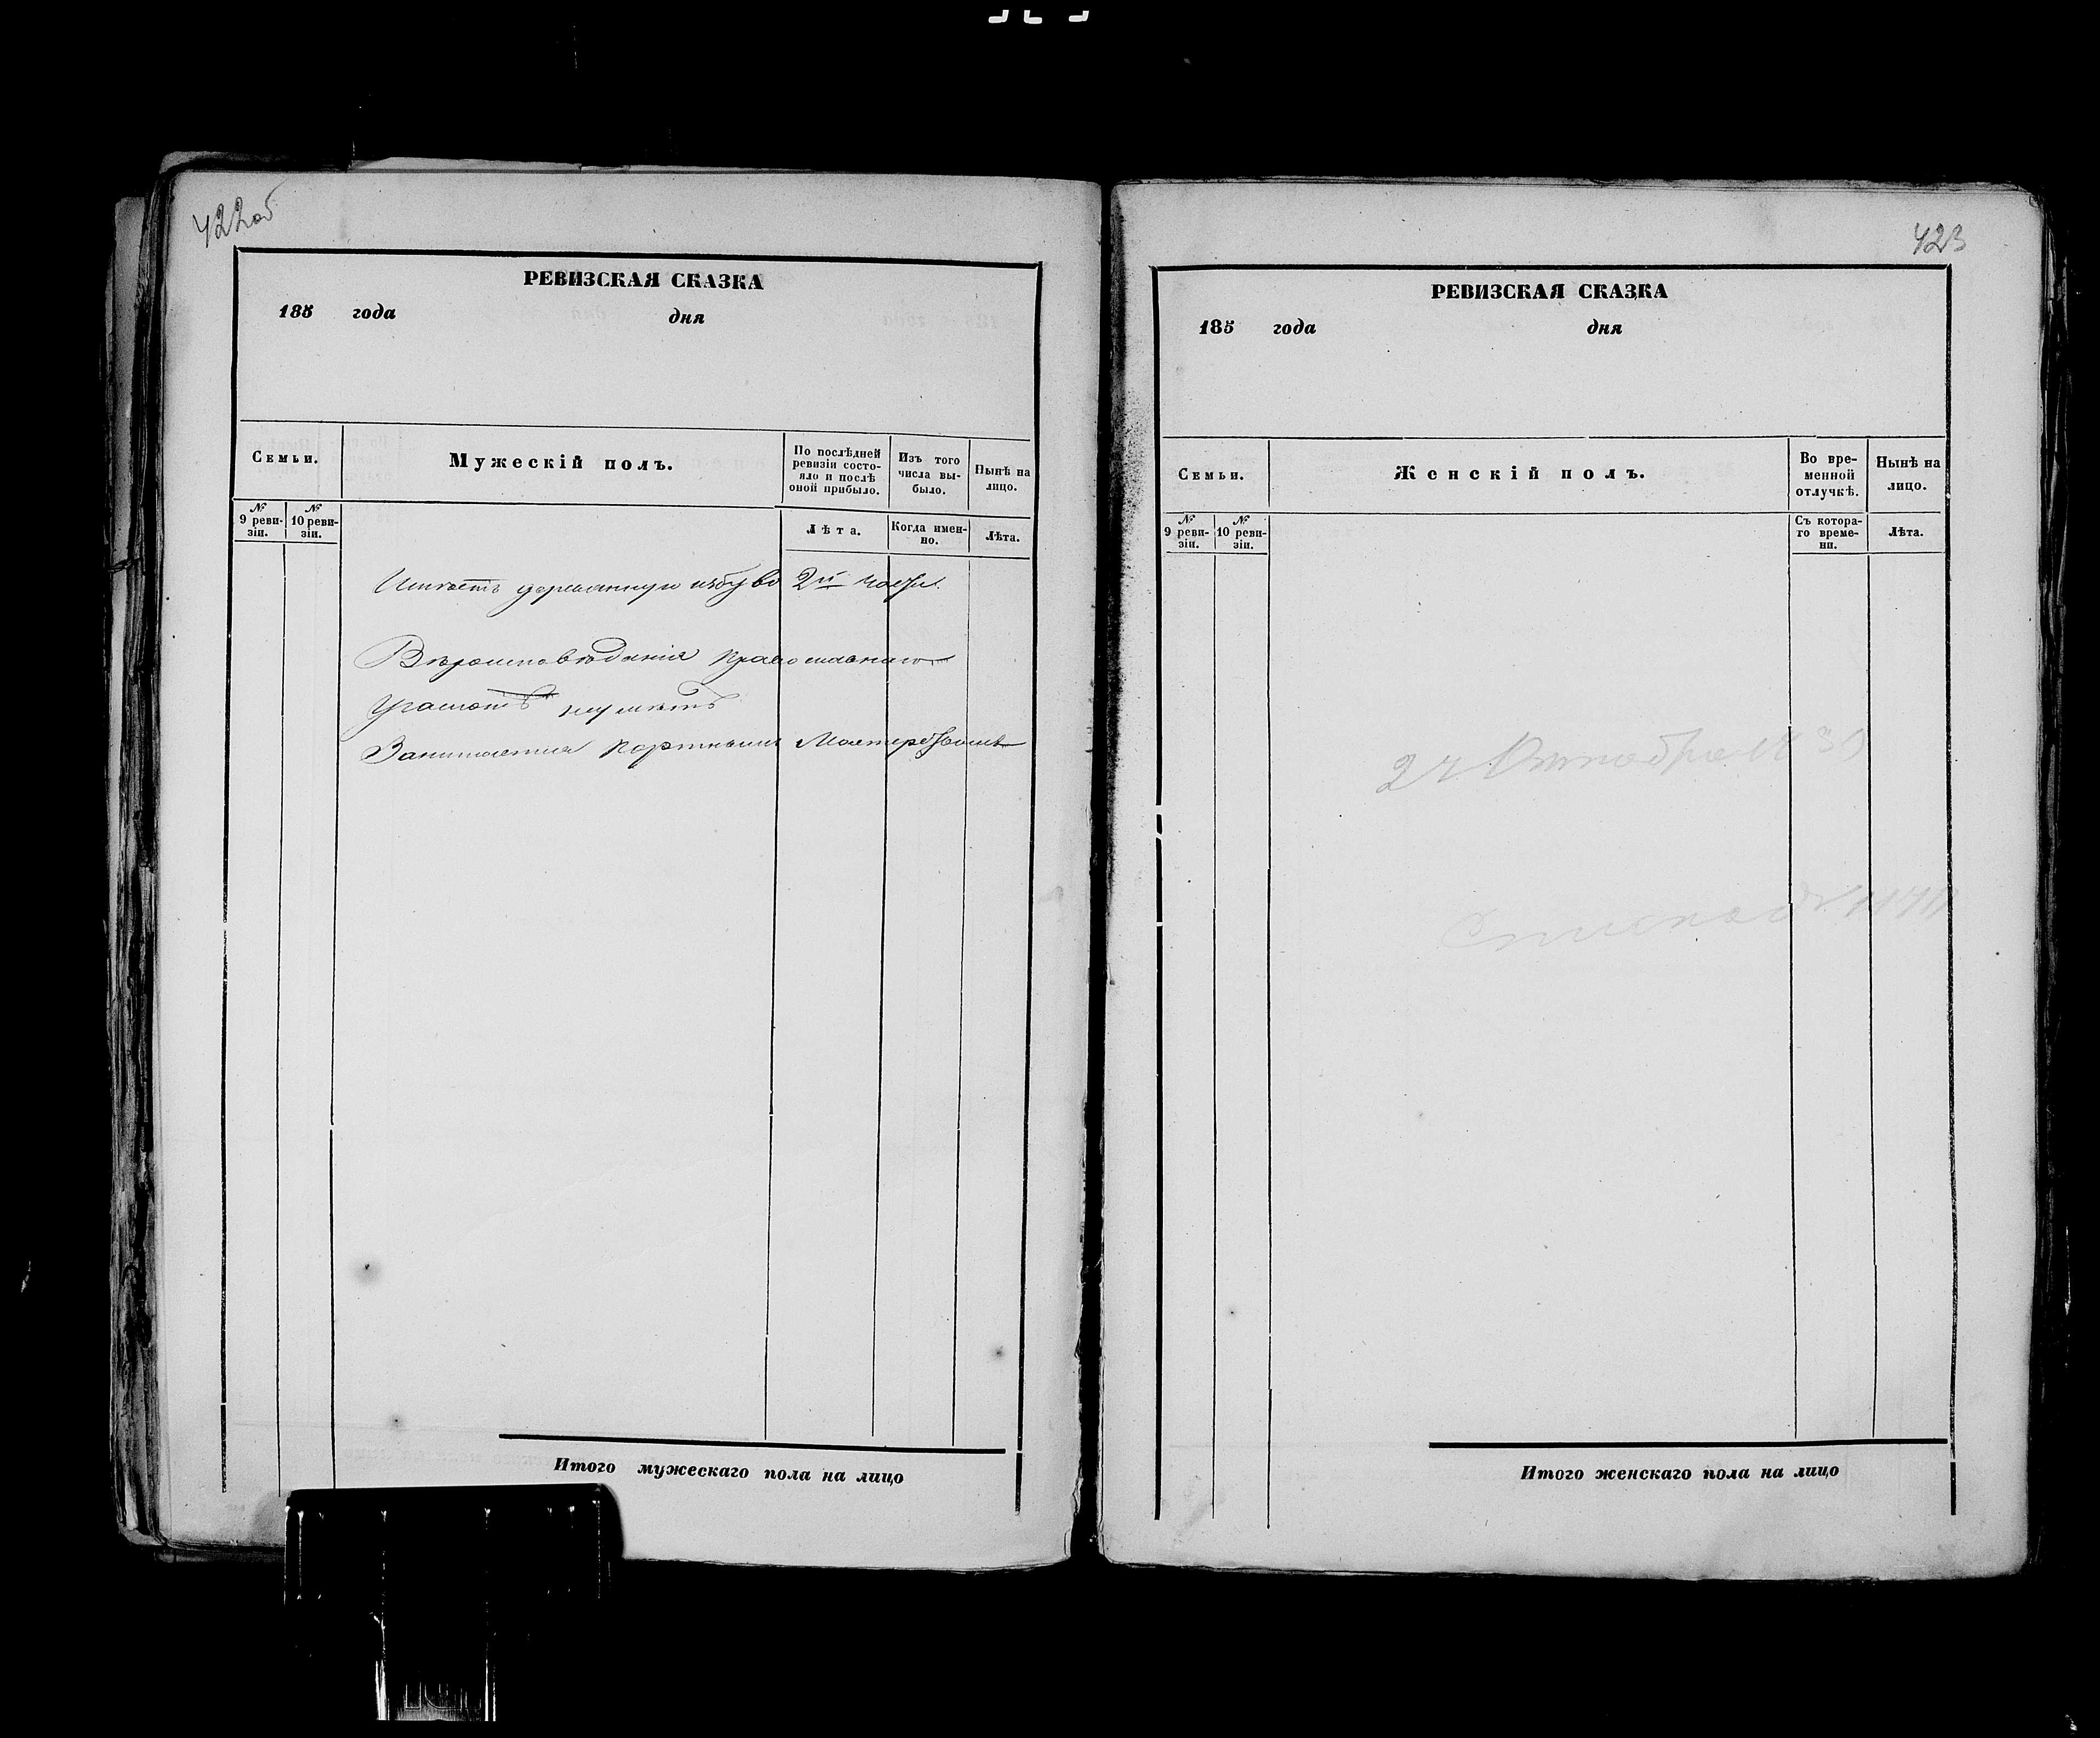 422об
РЕВИЗСКАЯ СКАЗКА
185 года дня
Семьи.
Мужескій полъ.
По послѣдней ревизіи состо-
яло и послѣ
оной прибыло.
Изъ того
числа вы-
было.
Нынѣ на
лицо.
№
9 реви-
зіи.
№
10 реви-
зіи.
Лѣта.
Когда имен-
но.
Лѣта.
Имѣетъ деревянную избу во 2й части.
Вѣроисповѣданія православнаго
Грамотѣ неумѣетъ
Занимается портнымъ мастерствомъ
Итого мужескаго пола на лицо
423
РЕВИЗСКАЯ СКАЗКА
185 года дня
Семьи.
Женскій полъ.
Во вре-
менной
отлучкѣ.
Нынѣ на
лицо.
№
9 реви-
зіи.
№
10 реви-
зіи.
Съ котора-
го време-
ни.
Лѣта.
Октября
Итого женскаго пола на лицо